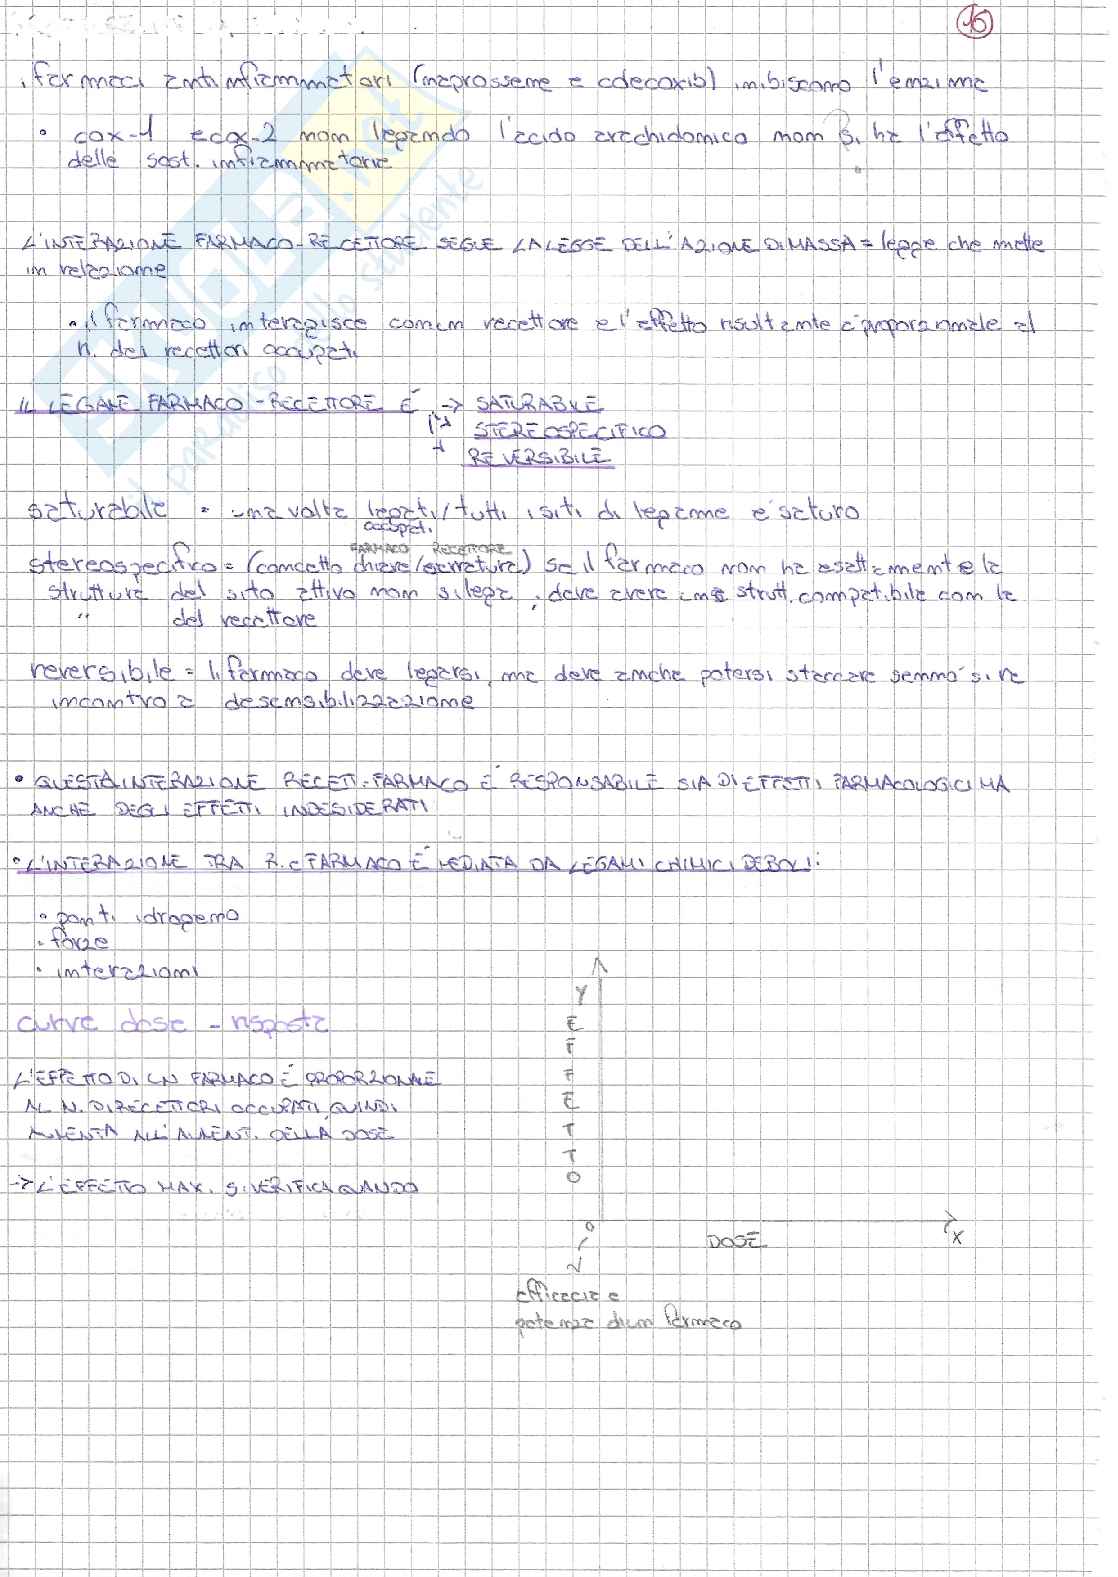 16
i farmaci antinfiammatori (naprossene e cdecoxib) inibiscono l'enzima
• cox-1 e cox-2 non legando l'acido arachidonico non si ha l'effetto
delle sost. infiammatorie
L'INTERAZIONE FARMACO-RECETTORE SEGUE LA LEGGE DELL'AZIONE DI MASSA = legge che mette
in relazione
• il farmaco interagisce con un recettore e l'effetto risultante è proporzionale al
n. dei recettori occupati
IL LEGAME FARMACO-RECETTORE È → SATURABILE
STEREOSPECIFICO
REVERSIBILE
saturabile = una volta legati/tutti i siti di legame è saturo
occupati
FARMACO RECETTORE
stereospecifico = (concetto chiave/serratura) se il farmaco non ha esattamente la
struttura del sito attivo non si lega, deve avere una strutt. compatibile con la
" del recettore
reversibile = il farmaco deve legarsi, ma deve anche potersi staccare sennò si va
incontro a desensibilizzazione
• QUESTA INTERAZIONE RECETT.-FARMACO È RESPONSABILE SIA DI EFFETTI FARMACOLOGICI MA
ANCHE DEGLI EFFETTI INDESIDERATI
• L'INTERAZIONE TRA R. e FARMACO È MEDIATA DA LEGAMI CHIMICI DEBOLI:
• ponti idrogeno
• forze
• interazioni
curve dose - risposta
L'EFFETTO DI UN FARMACO È PROPORZIONALE
AL N. DI RECETTORI OCCUPATI, QUINDI
AUMENTA ALL'AUMENT. DELLA DOSE
→ L'EFFETTO MAX. SI VERIFICA QUANDO
Y
EFFETTO
0
DOSE
X
efficacia e
potenza di un farmaco
skuola.net
il paradiso dello studente